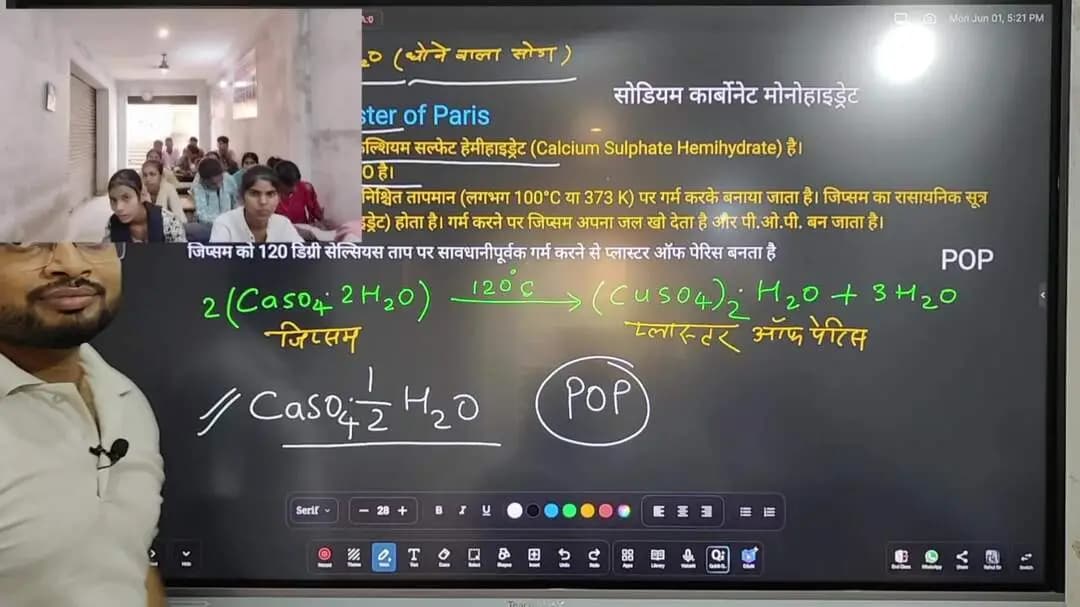 Mon Jun 01, 5:21 PM
O (धोने वाला सोडा)
सोडियम कार्बोनेट मोनोहाइड्रेट
ster of Paris
ल्शियम सल्फेट हेमीहाइड्रेट (Calcium Sulphate Hemihydrate) है।
O है।
निश्चित तापमान (लगभग 100°C या 373 K) पर गर्म करके बनाया जाता है। जिप्सम का रासायनिक सूत्र
ड्रेट) होता है। गर्म करने पर जिप्सम अपना जल खो देता है और पी.ओ.पी. बन जाता है।
जिप्सम को 120 डिग्री सेल्सियस ताप पर सावधानीपूर्वक गर्म करने से प्लास्टर ऑफ पेरिस बनता है
POP
2(CaSO₄·2H₂O) 120°C → (CuSO₄)₂·H₂O + 3H₂O
जिप्सम प्लास्टर ऑफ पेरिस
// CaSO₄·1/2 H₂O POP
Serif − 28 + B I U
Text Undo Redo Apps Library WhatsApp Share